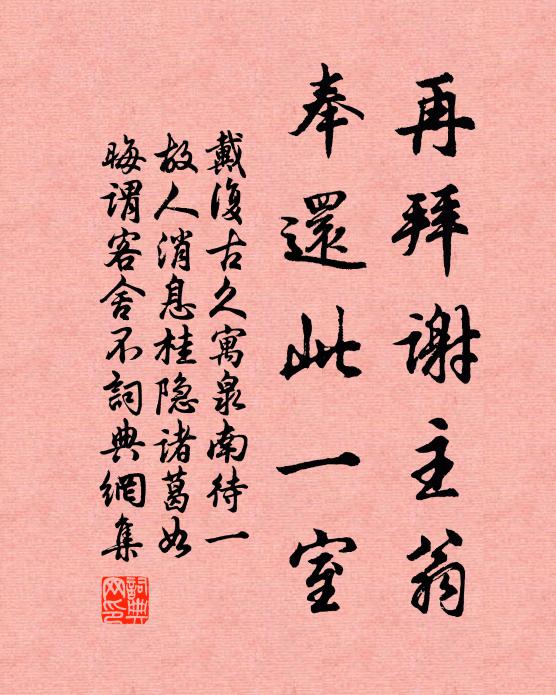 再拜謝主翁
奉還此一室
戴復古久寓泉南待一
故人消息桂隐諸葛如
晦谓客舍不詞典網集
詞典網印